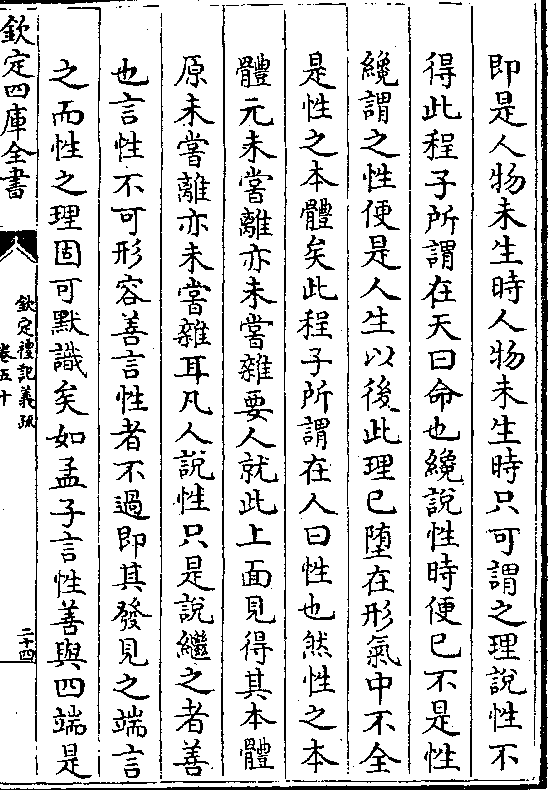 即是人物未生時人物未生時只可謂之理說性不
得此程子所謂在天曰命也纔說性時便已不是性
纔謂之性便是人生以後此理已墮在形氣中不全
是性之本體矣此程子所謂在人曰性也然性之本
體元未嘗離亦未嘗雜要人就此上面見得其本體
原未嘗離亦未嘗雜耳凡人說性只是說繼之者善
也言性不可形容善言性者不過即其發見之端言
之而性之理固可默識矣如孟子言性善與四端是
欽定四庫全書
欽定禮記義疏
卷五十
二十四